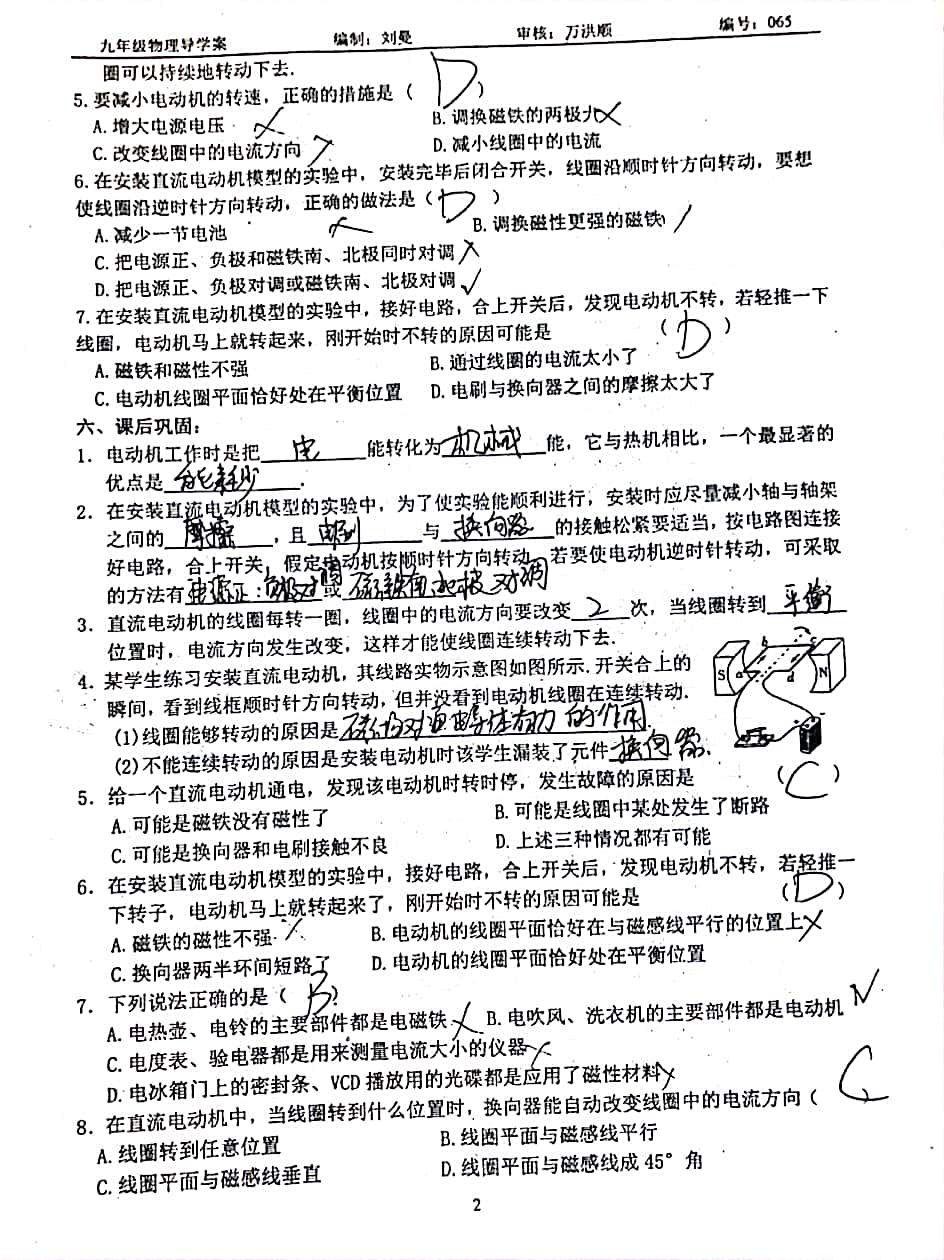 九年级物理导学案 编制：刘曼 审核：万洪顺 编号：065
圈可以持续地转动下去.
5.要减小电动机的转速，正确的措施是（ D ）
A.增大电源电压 × B.调换磁铁的两极 ×
C.改变线圈中的电流方向 × D.减小线圈中的电流
6.在安装直流电动机模型的实验中，安装完毕后闭合开关，线圈沿顺时针方向转动，要想
使线圈沿逆时针方向转动，正确的做法是（ D ）
A.减少一节电池 × B.调换磁性更强的磁铁
C.把电源正、负极和磁铁南、北极同时对调 ×
D.把电源正、负极对调或磁铁南、北极对调 √
7.在安装直流电动机模型的实验中，接好电路，合上开关后，发现电动机不转，若轻推一下
线圈，电动机马上就转起来，刚开始时不转的原因可能是 （ D ）
A.磁铁和磁性不强 B.通过线圈的电流太小了
C.电动机线圈平面恰好处在平衡位置 D.电刷与换向器之间的摩擦太大了
六、课后巩固：
1．电动机工作时是把 电 能转化为 机械 能，它与热机相比，一个最显著的
优点是 能耗少 .
2．在安装直流电动机模型的实验中，为了使实验能顺利进行，安装时应尽量减小轴与轴架
之间的 摩擦 ，且 电刷 与 换向器 的接触松紧要适当，按电路图连接
好电路，合上开关，假定电动机按顺时针方向转动，若要使电动机逆时针转动，可采取
的方法有 电源正：负极对调 或 磁铁南北极对调
3．直流电动机的线圈每转一圈，线圈中的电流方向要改变 2 次，当线圈转到 平衡
位置时，电流方向发生改变，这样才能使线圈连续转动下去.
4．某学生练习安装直流电动机，其线路实物示意图如图所示.开关合上的
瞬间，看到线框顺时针方向转动，但并没看到电动机线圈在连续转动.
(1)线圈能够转动的原因是 磁场对通电导体有力的作用.
(2)不能连续转动的原因是安装电动机时该学生漏装了元件 换向器.
S a b c d N
5．给一个直流电动机通电，发现该电动机时转时停，发生故障的原因是 （ C ）
A.可能是磁铁没有磁性了 B.可能是线圈中某处发生了断路
C.可能是换向器和电刷接触不良 D.上述三种情况都有可能
6．在安装直流电动机模型的实验中，接好电路，合上开关后，发现电动机不转，若轻推一
下转子，电动机马上就转起来了，刚开始时不转的原因可能是 （ D ）
A.磁铁的磁性不强 × B.电动机的线圈平面恰好在与磁感线平行的位置上 ×
C.换向器两半环间短路了 D.电动机的线圈平面恰好处在平衡位置
7．下列说法正确的是（ B ）
A.电热壶、电铃的主要部件都是电磁铁 × B.电吹风、洗衣机的主要部件都是电动机
C.电度表、验电器都是用来测量电流大小的仪器 ×
D.电冰箱门上的密封条、VCD播放用的光碟都是应用了磁性材料 ×
8．在直流电动机中，当线圈转到什么位置时，换向器能自动改变线圈中的电流方向（ C
A.线圈转到任意位置 B.线圈平面与磁感线平行
C.线圈平面与磁感线垂直 D.线圈平面与磁感线成45°角
2